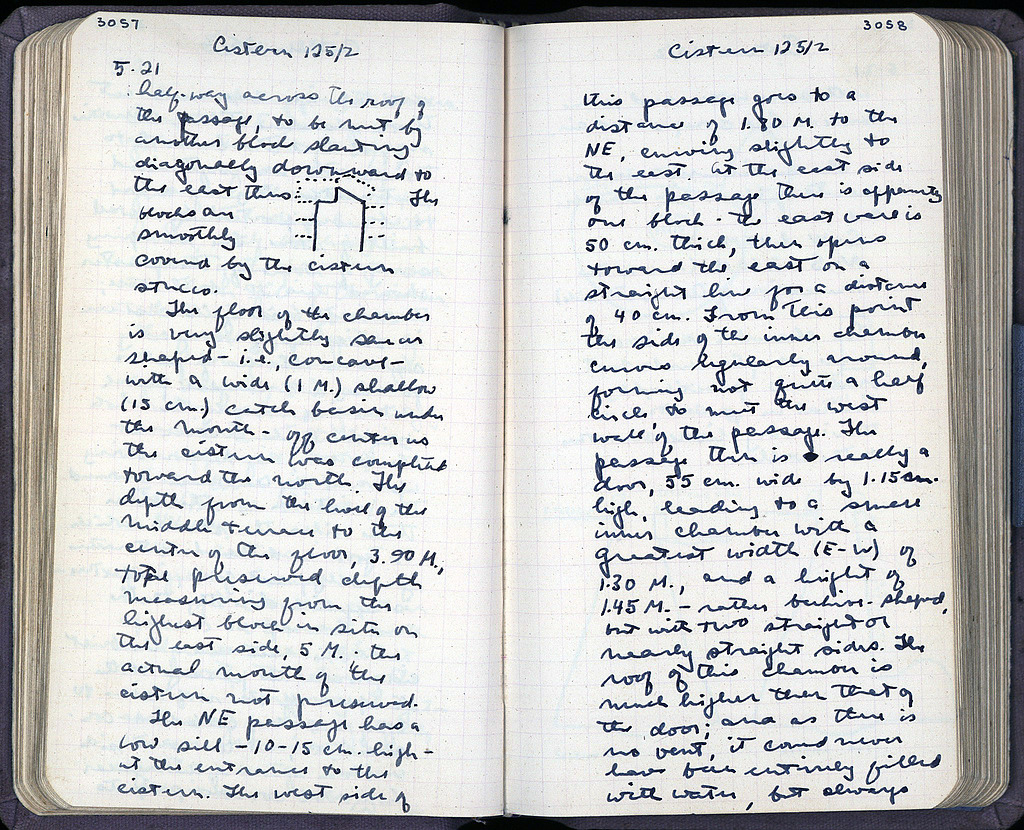 3057
Cistern 125/2
5.21
half-way across the roof of
the passage, to be met by
another block slanting
diagonally downward to
the east thus The
blocks are
smoothly
covered by the cistern
stucco.
The floor of the chamber
is very slightly saucer
shaped - i.e., concave -
with a wide (1 M.) shallow
(15 cm.) catch basin under
the mouth - off center as
the cistern was completed
toward the north. The
depth from the level of the
middle terrace to the
center of the floor, 3.90 M.,
total preserved depth
measuring from the
highest block in situ on
the east side, 5 M. - the
actual mouth of the
cistern not preserved.
The NE passage has a
low sill - 10-15 cm. high -
at the entrance to the
cistern. The west side of
3058
Cistern 125/2
this passage goes to a
distance of 1.80 M. to the
NE, curving slightly to
the east. At the east side
of the passage there is apparently
one block - the east face is
50 cm. thick, then opens
toward the east on a
straight line for a distance
of 40 cm. From this point
the side of the inner chamber
curves regularly around,
forming not quite a half
circle to meet the west
wall of the passage. The
passage then is really a
door, 55 cm. wide by 1.15 cm.
high, leading to a small
inner chamber with a
greatest width (E-W) of
1.30 M., and a height of
1.45 M. - rather beehive-shaped,
but with two straight or
nearly straight sides. The
roof of this chamber is
much higher than that of
the door; and as there is
no vent, it could never
have been entirely filled
with water, but always